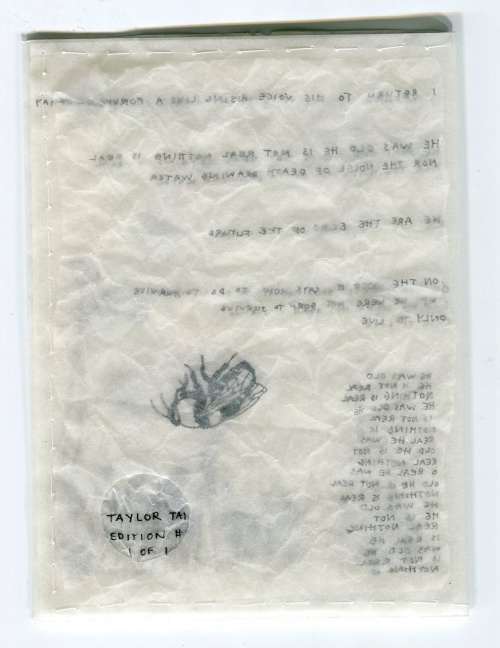 I RETURN TO HIS VOICE RISING LIKE A
HE WAS OLD HE IS NOT REAL NOTHING IS REAL
NOR THE NOISE OF DEATH DRAWING WATER
WE ARE THE ECHO OF THE FUTURE
ON THE DOOR IT SAYS HOW TO DO TO SURVIVE
BUT WE WERE NOT BORN TO SURVIVE
ONLY TO LIVE
HE WAS OLD
HE IS NOT REAL
NOTHING IS REAL
HE WAS OLD HE
IS NOT REAL
NOTHING IS
REAL HE WAS
OLD HE IS NOT
REAL NOTHING
IS REAL HE WAS
OLD HE IS NOT REAL
NOTHING IS REAL
HE WAS OLD
HE IS NOT
REAL NOTHING
IS REAL HE
WAS OLD HE
IS NOT REAL
NOTHING IS
TAYLOR TAI
EDITION #
1 OF 1